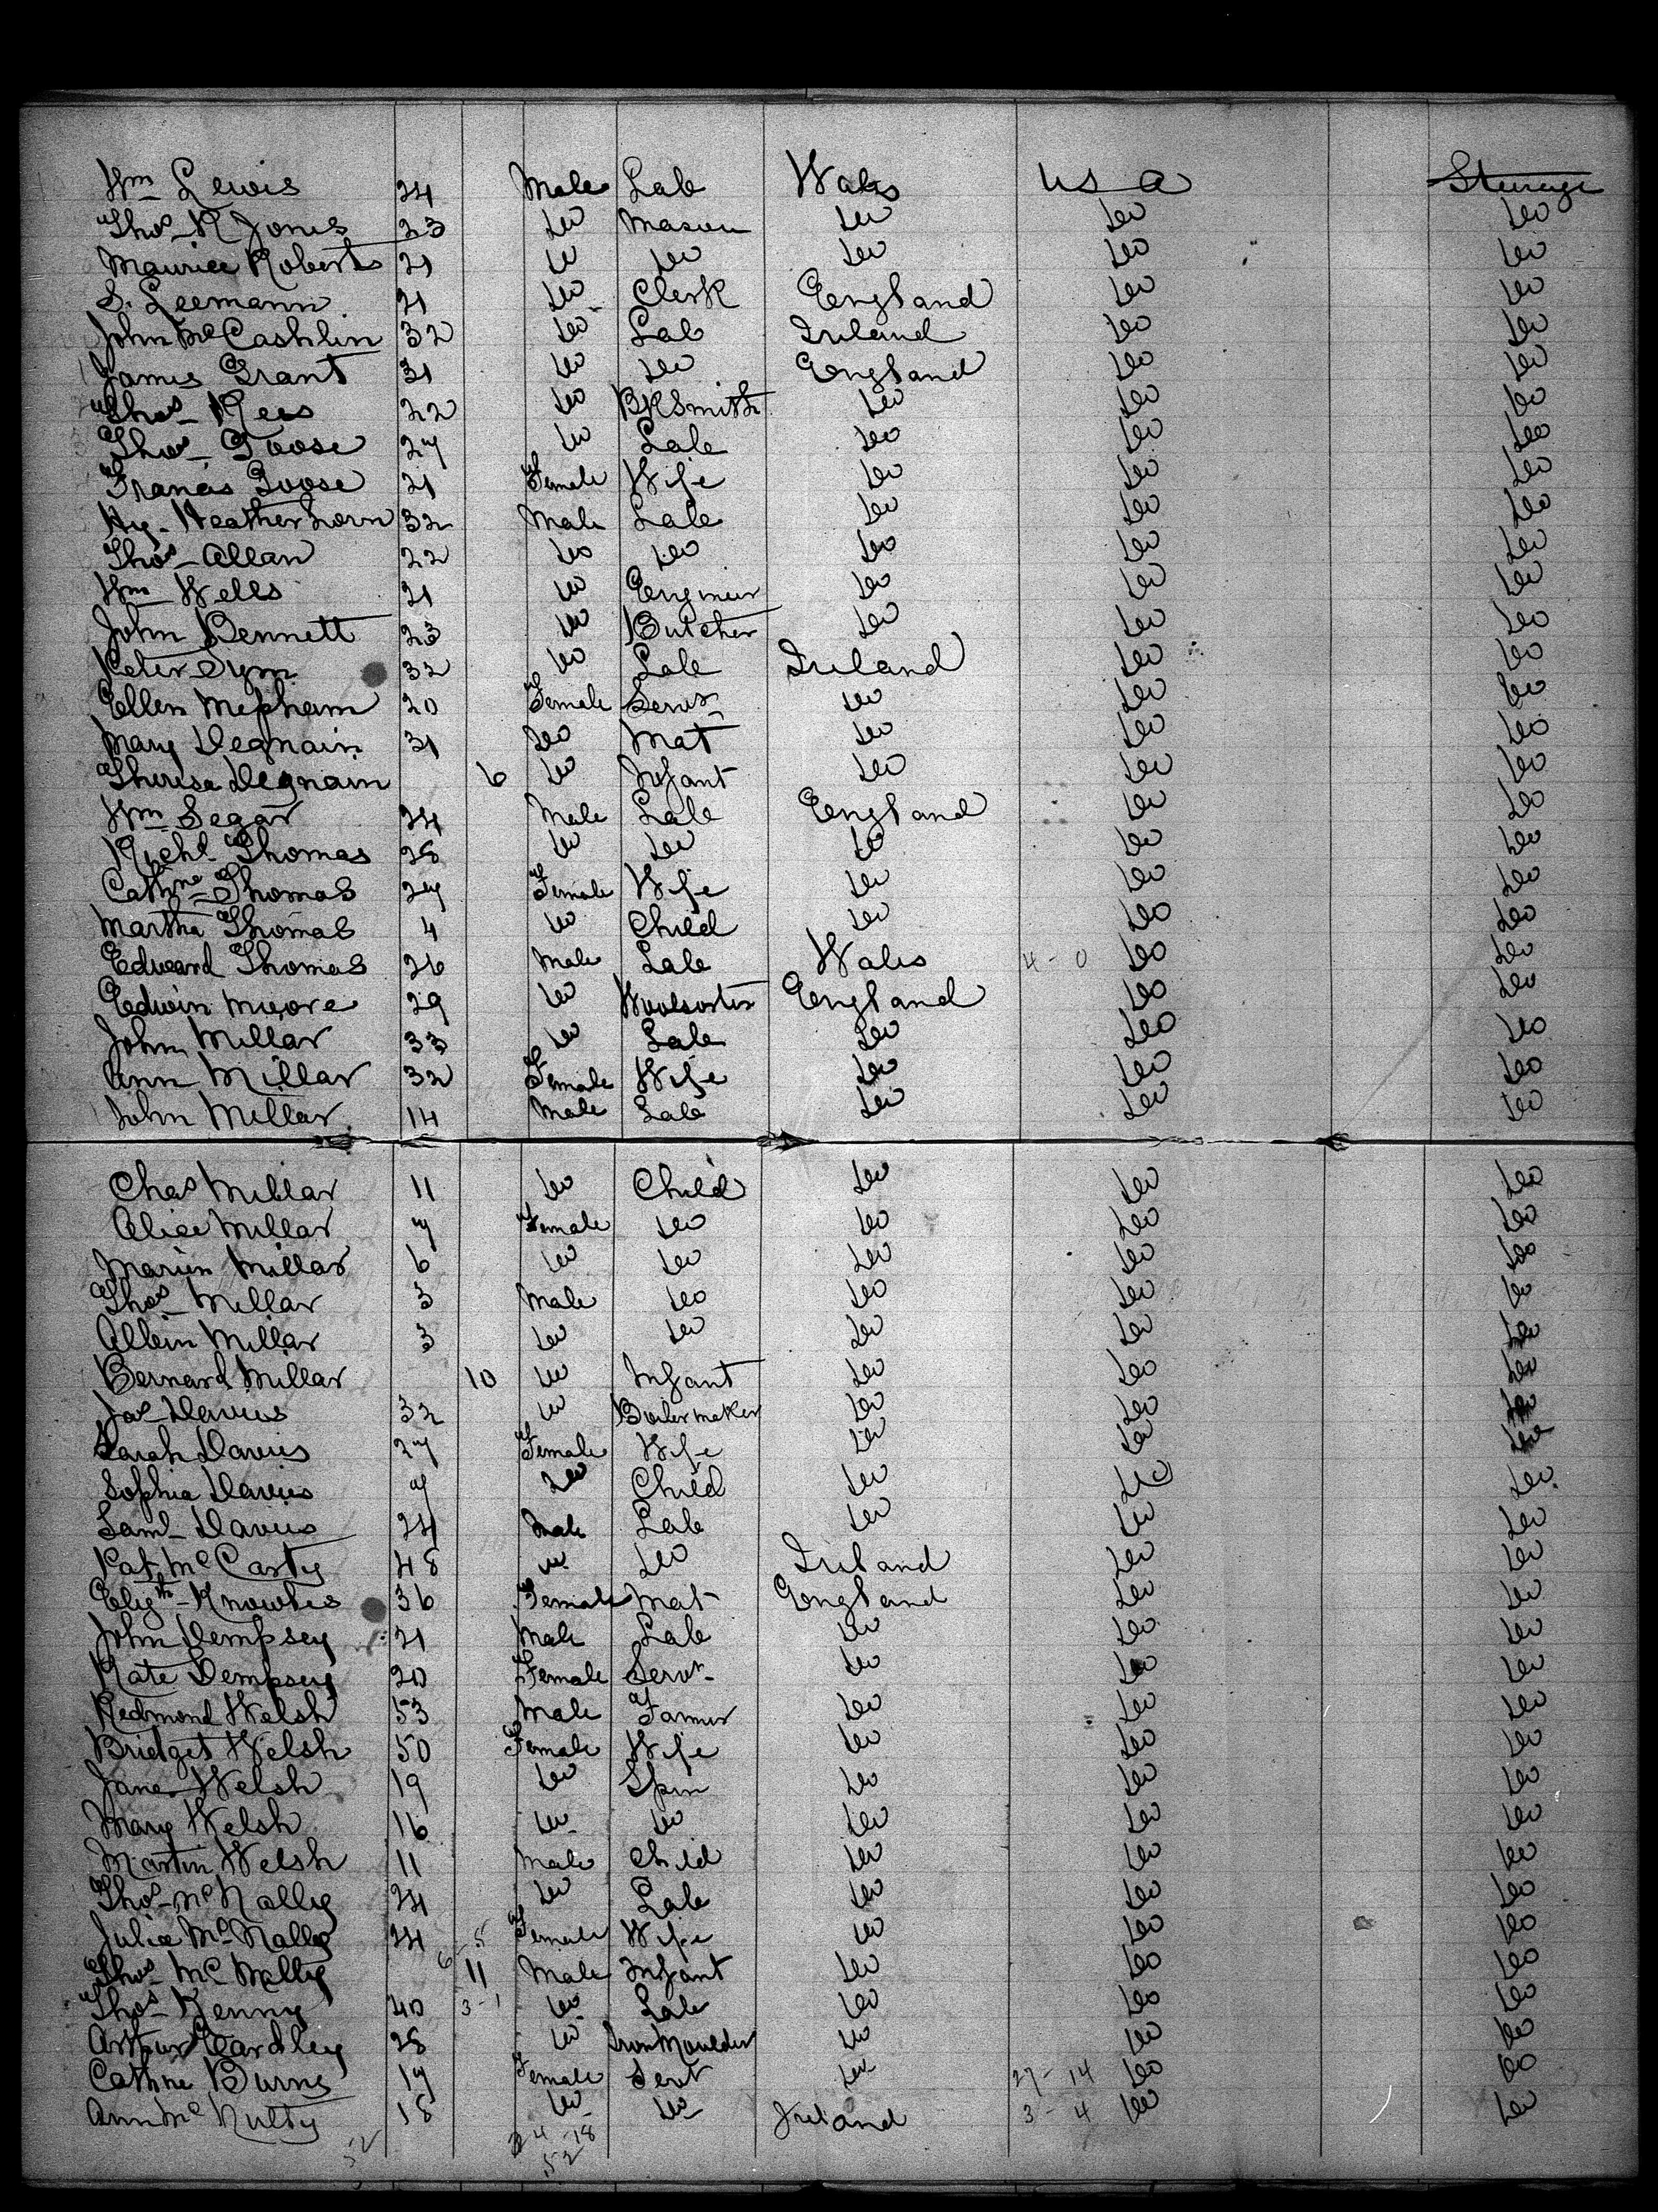 Wm Lewis 24 Male Lab Wales U S A Steerage
Thos R Jones 23 Do Mason Do Do Do
Maurice Roberts 21 Do Do Do Do Do
S. Leemann 21 Do Clerk England Do Do
John McCashlin 32 Do Lab Ireland Do Do
James Grant 31 Do Do England Do Do
Thos Rees 22 Do BkSmith Do Do Do
Thos Goose 27 Do Lab Do Do Do
Francis Goose 21 Female Wife Do Do Do
Hy. Heatherhorn 32 Male Lab Do Do Do
Thos Allan 22 Do Do Do Do Do
Wm Wells 21 Do Engineer Do Do Do
John Bennett 23 Do Butcher Do Do Do
Peter Sym 32 Do Lab Ireland Do Do
Ellen Mepham 20 Female Servt Do Do Do
Mary Degnain 31 Do Mat Do Do Do
Theresa Degnain 6 Do Infant Do Do Do
Wm Segar 24 Male Lab England Do Do
Richd Thomas 28 Do Do Do Do Do
Cathne Thomas 27 Female Wife Do Do Do
Martha Thomas 4 Do Child Do Do Do
Edward Thomas 26 Male Lab Wales 4 - 0 Do Do
Edwin Moore 29 Do Woolsorter England Do Do
John Millar 33 Do Lab Do Do Do
Ann Millar 32 Female Wife Do Do Do
John Millar 14 Male Lab Do Do Do
Chas Millar 11 Do Child Do Do Do
Alice Millar 7 Female Do Do Do Do
Marion Millar 6 Do Do Do Do Do
Thos Millar 3 Male Do Do Do Do
Albin Millar 3 Do Do Do Do Do
Bernard Millar 10 Do Infant Do Do Do
Jos Davies 32 Do Boilermaker Do Do Do
Sarah Davies 27 Female Wife Do Do Do
Sophia Davies 9 Do Child Do Do Do
Saml Davies 24 Male Lab Do Do Do
Pat McCarty 48 Do Do Ireland Do Do
Elizth Knowles 36 Female Mat England Do Do
John Dempsey 21 Male Lab Do Do Do
Kate Dempsey 20 Female Servt Do Do Do
Redmond Welsh 53 Male Farmer Do Do Do
Bridget Welsh 50 Female Wife Do Do Do
Jane Welsh 19 Do Spin Do Do Do
Mary Welsh 16 Do Do Do Do Do
Martin Welsh 11 Male Child Do Do Do
Thos McNally 24 Do Lab Do Do Do
Julia McNally 24 Female Wife Do Do Do
Thos McNally 6-5 11 Male Infant Do Do Do
Thos Kenny 40 3-1 Do Lab Do Do Do
Arthur Eardley 28 Do Iron Moulder Do Do Do
Cathne Burns 17 Female Servt Do 27-14 Do Do
Ann McNulty 18 Do Do Ireland 3-4 Do Do
52 34-18
52